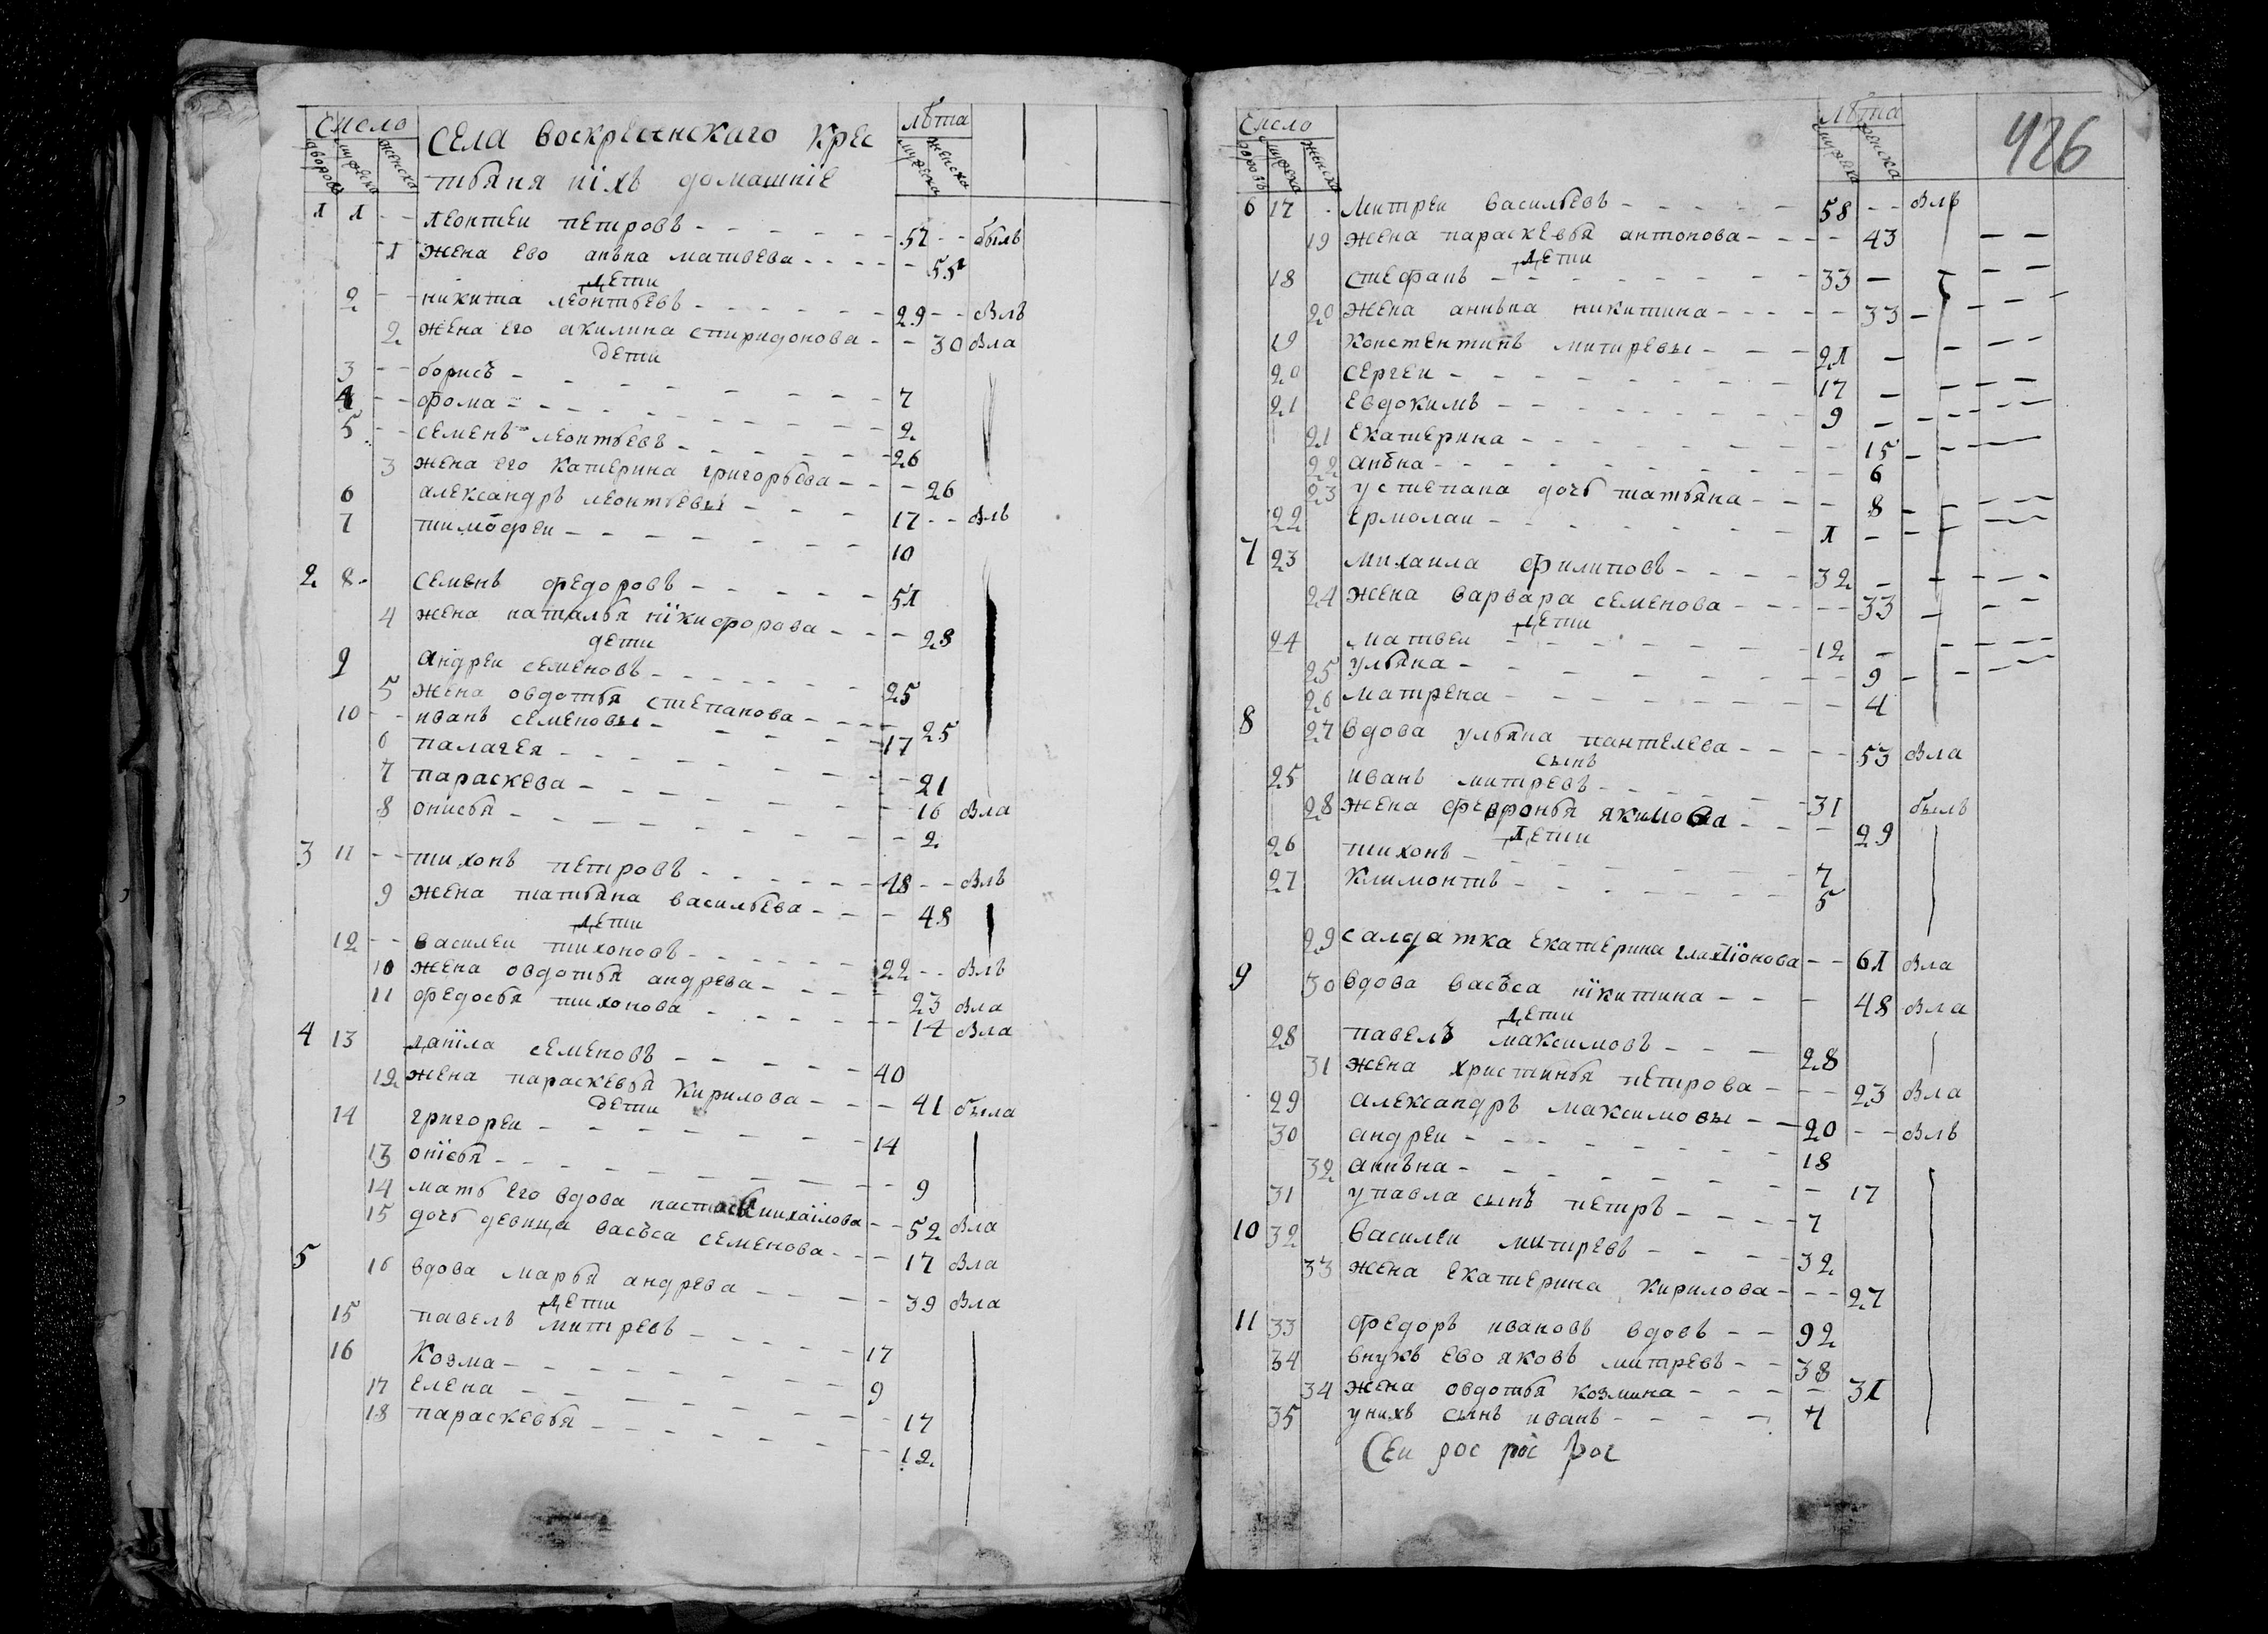 Число
дворовъ мужеска женска
Села воскресенскаго крес
тьяня ніхъ домашніе
лѣта
мужеска женска
1 1 - - леонтеи петровъ - - - - - - 57 - - былъ
1 жена ево анъна матвева - - - - - 55
дети
2 - - никита леонтьевъ - - - - - - 29 - - Влъ
2 жена его акилина спиридонова - - 30 Вла
дети
3 - - борисъ - - - - - - - - 7
4 - - фома - - - - - - - - 2
5 - - семенъ леонтьевъ - - - - - - 26
3 жена его катерина григорьева - - - 26
6 александръ леонтьевы - - - 17 - - Влъ
7 тимофеи - - - - - - - 10
2 8 семенъ федоровъ - - - - - 51
4 жена наталья нікифорова - - - 28
дети
9 андреи семеновъ - - - - - - 25
5 жена овдотья степанова - - - - 25
10 - - иванъ семеновы - - - - - 17
6 палагея - - - - - - - - 21
7 параскева - - - - - - - 16 Вла
8 онисья - - - - - - - - 2
3 11 - - тихонъ петровъ - - - - - - 48 - - Влъ
9 жена татьяна васильева - - - 48
дети
12 - - василеи тихоновъ - - - - - - 22 - - Влъ
10 жена овдотья андрева - - - - 23 Вла
11 федосья тихонова - - - - - - - 14 Вла
4 13 даніла семеновъ - - - - - - 40
12 жена параскевья кирилова - - - 41 была
дети
14 григореи - - - - - - - 14
13 онісья - - - - - - - - 9
14 мать его вдова настасья михаілова - - 52 Вла
15 дочь девица васъса семенова - - - 17 Вла
5 16 вдова марья андрева - - - - 39 Вла
дети
15 павелъ митревъ - - - - - 17
16 козма - - - - - - - - 9
17 елена - - - - - - - - 17
18 параскевья - - - - - - - - 12
Число
дворовъ мужеска женска
лѣта
мужеска женска
426
6 17 - митреи васильевъ - - - - - 58 - - Влъ
19 жена параскевья антонова - - - - 43
дети
18 стефанъ - - - - - - - - 33 -
20 жена аннъна никитина - - - - - 33 -
19 констентинъ митиревы - - - 21 -
20 сергеи - - - - - - - - 17 -
21 евдокимъ - - - - - - - 9 -
21 екатерина - - - - - - - - 15 -
22 анъна - - - - - - - - - 6
23 у степана дочь татьяна - - - 8 -
22 ермолаи - - - - - - - 1 -
7 23 михаила филиповъ - - - - 32 -
24 жена варвара семенова - - - - - 33 -
дети
24 матвеи - - - - - - - 12 -
25 ульяна - - - - - - - - 9 -
26 матрена - - - - - - - - 4
8 27 вдова ульяна пантелева - - - - 53 Вла
сынъ
25 иванъ митревъ - - - - - - 31 былъ
28 жена февронья якимова - - - 29
дети
26 тихонъ - - - - - - - 7
27 климонтиъ - - - - - - - 5
29 салдатка екатерина - - 61 Вла
9 30 вдова васъса нікитина - - - 48 Вла
дети
28 павелъ максимовъ - - - - 28
31 жена христинья петрова - - - 23 Вла
29 александръ максимовы - - 20 - - Влъ
30 андреи - - - - - - - 18
32 аннъна - - - - - - - 17
31 у павла сынъ петръ - - - - 7
10 32 василеи митревъ - - - - 32
33 жена екатерина кирилова - - - 27
11 33 федоръ ивановъ вдовъ - - 92
34 внукъ ево яковъ митревъ - - 38
34 жена овдотья козмина - - - - - 31
35 у нихъ сынъ иванъ - - - - 4